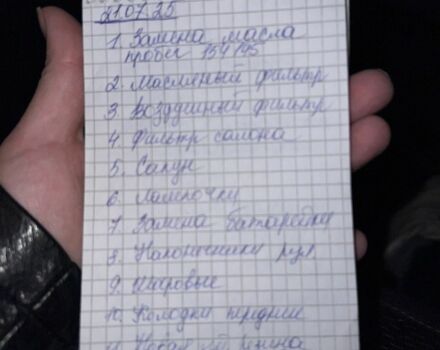 21.07.25
1. Замена масла
пробег 154 195
2. Масляный фильтр
3. Воздушный фильтр
4. Фильтр салона
5. Сапун
6. Лампочки
7. Замена батарейки
8. Наконечники рул.
9. Шаровые
10. Колодки передние
11. Новая